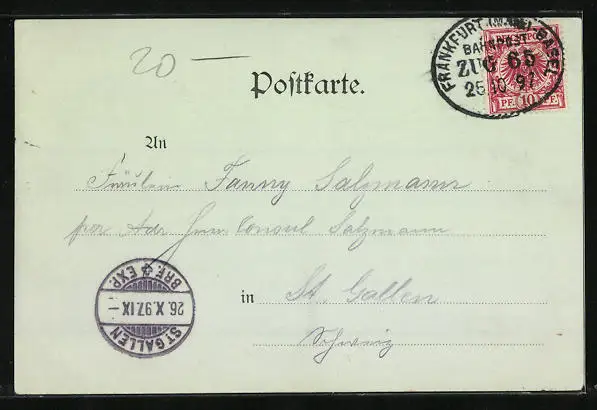 20 —
Postkarte.
FRANKFURT (MAIN) BASEL
BAHNPOST
ZUG 65
25.10.97
PF. 10 PF.
An
Fräulein Fanny Salzmann
per Adr Herrn Consul Salzmann
in St. Gallen
Schweiz
ST. GALLEN
26.X.97.IX-
BRF. EXP.